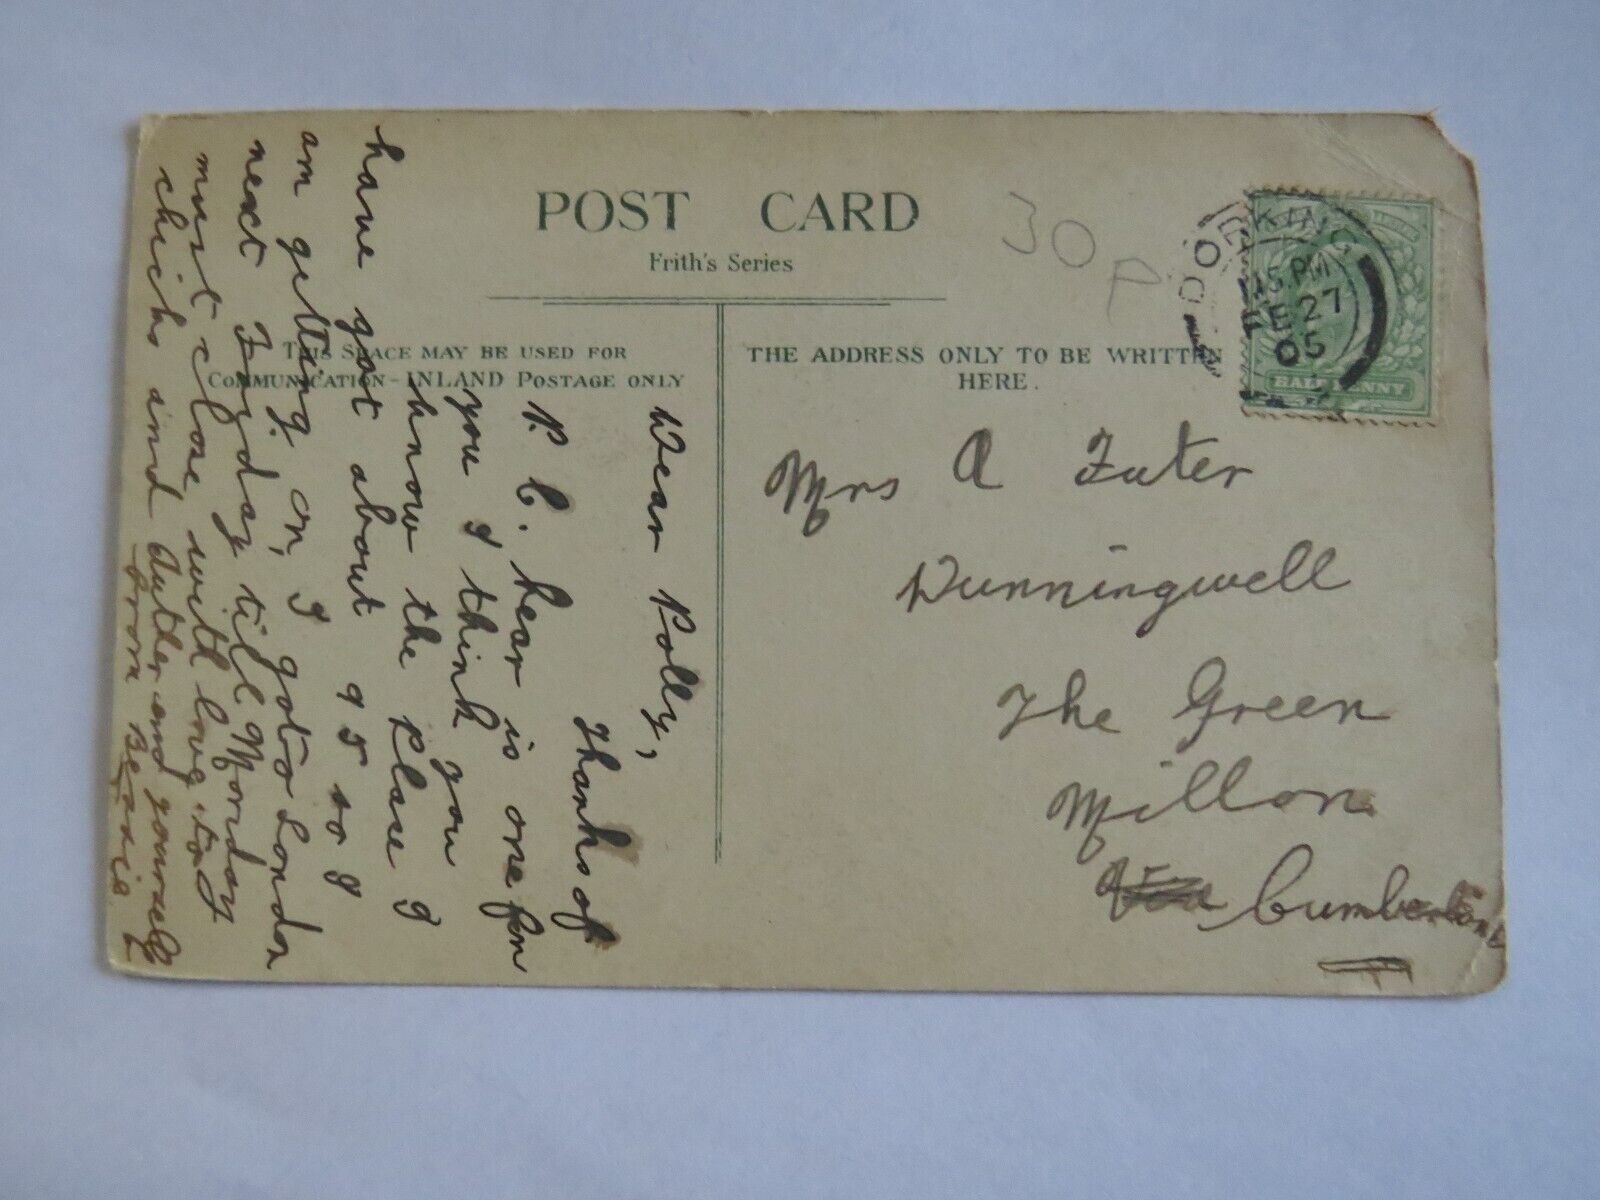 POST CARD
Frith's Series
30P
THIS SPACE MAY BE USED FOR
COMMUNICATION - INLAND POSTAGE ONLY
THE ADDRESS ONLY TO BE WRITTEN
HERE.
DORKING
45 PM
FE 27
05
HALFPENNY
Mrs A Futer
Dunningwell
The Green
Millom
Cumberland
Dear Polly,
Thanks of
P. C. hear is one for
you I think you
know the place I
have got about 95 so I
am getting on, I got to London
next Fryday till Monday
must close with love to
chicks and Auther and yourself
from Bessie